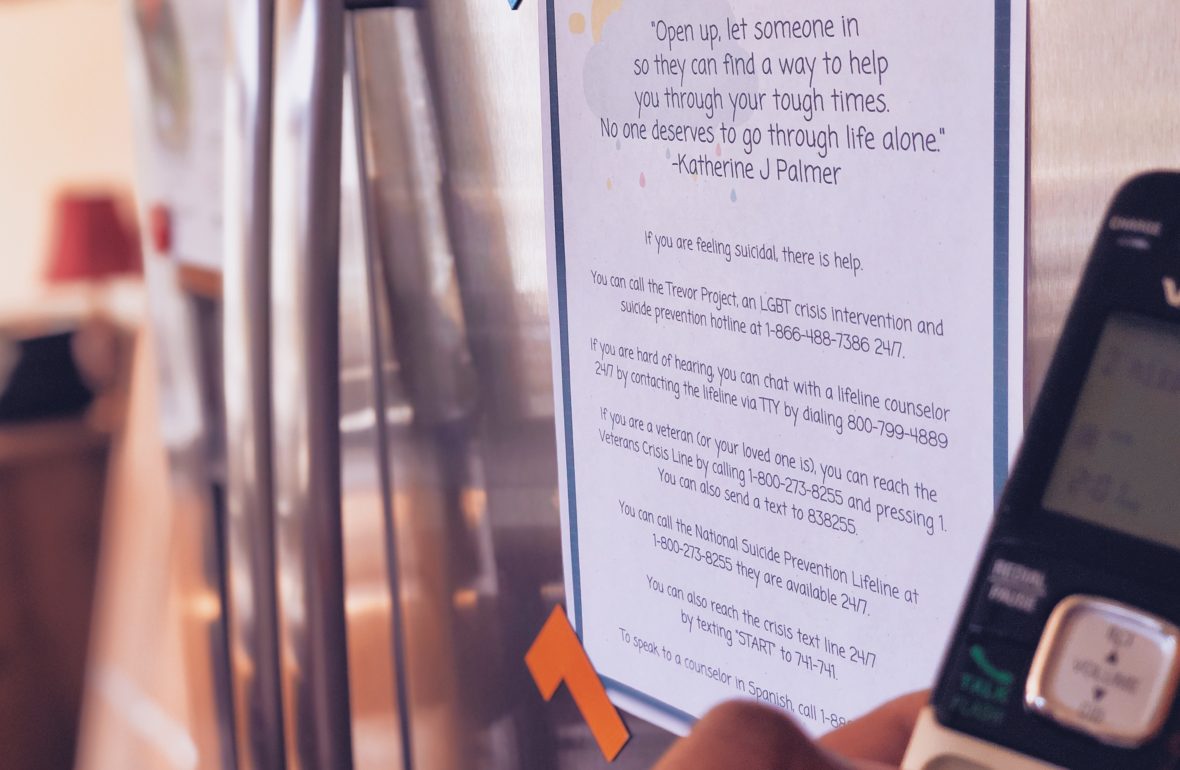 "Open up, let someone in
so they can find a way to help
you through your tough times.
No one deserves to go through life alone."
-Katherine J Palmer
If you are feeling suicidal, there is help.
You can call the Trevor Project, an LGBT crisis intervention and
suicide prevention hotline at 1-866-488-7386 24/7.
If you are hard of hearing, you can chat with a lifeline counselor
24/7 by contacting the lifeline via TTY by dialing 800-799-4889
If you are a veteran (or your loved one is), you can reach the
Veterans Crisis Line by calling 1-800-273-8255 and pressing 1.
You can also send a text to 838255.
You can call the National Suicide Prevention Lifeline at
1-800-273-8255 they are available 24/7.
You can also reach the crisis text line 24/7
by texting "START" to 741-741.
To speak to a counselor in Spanish, call 1-88
CHARGE
REDIAL
PAUSE
TALK
FLASH
VOLUME